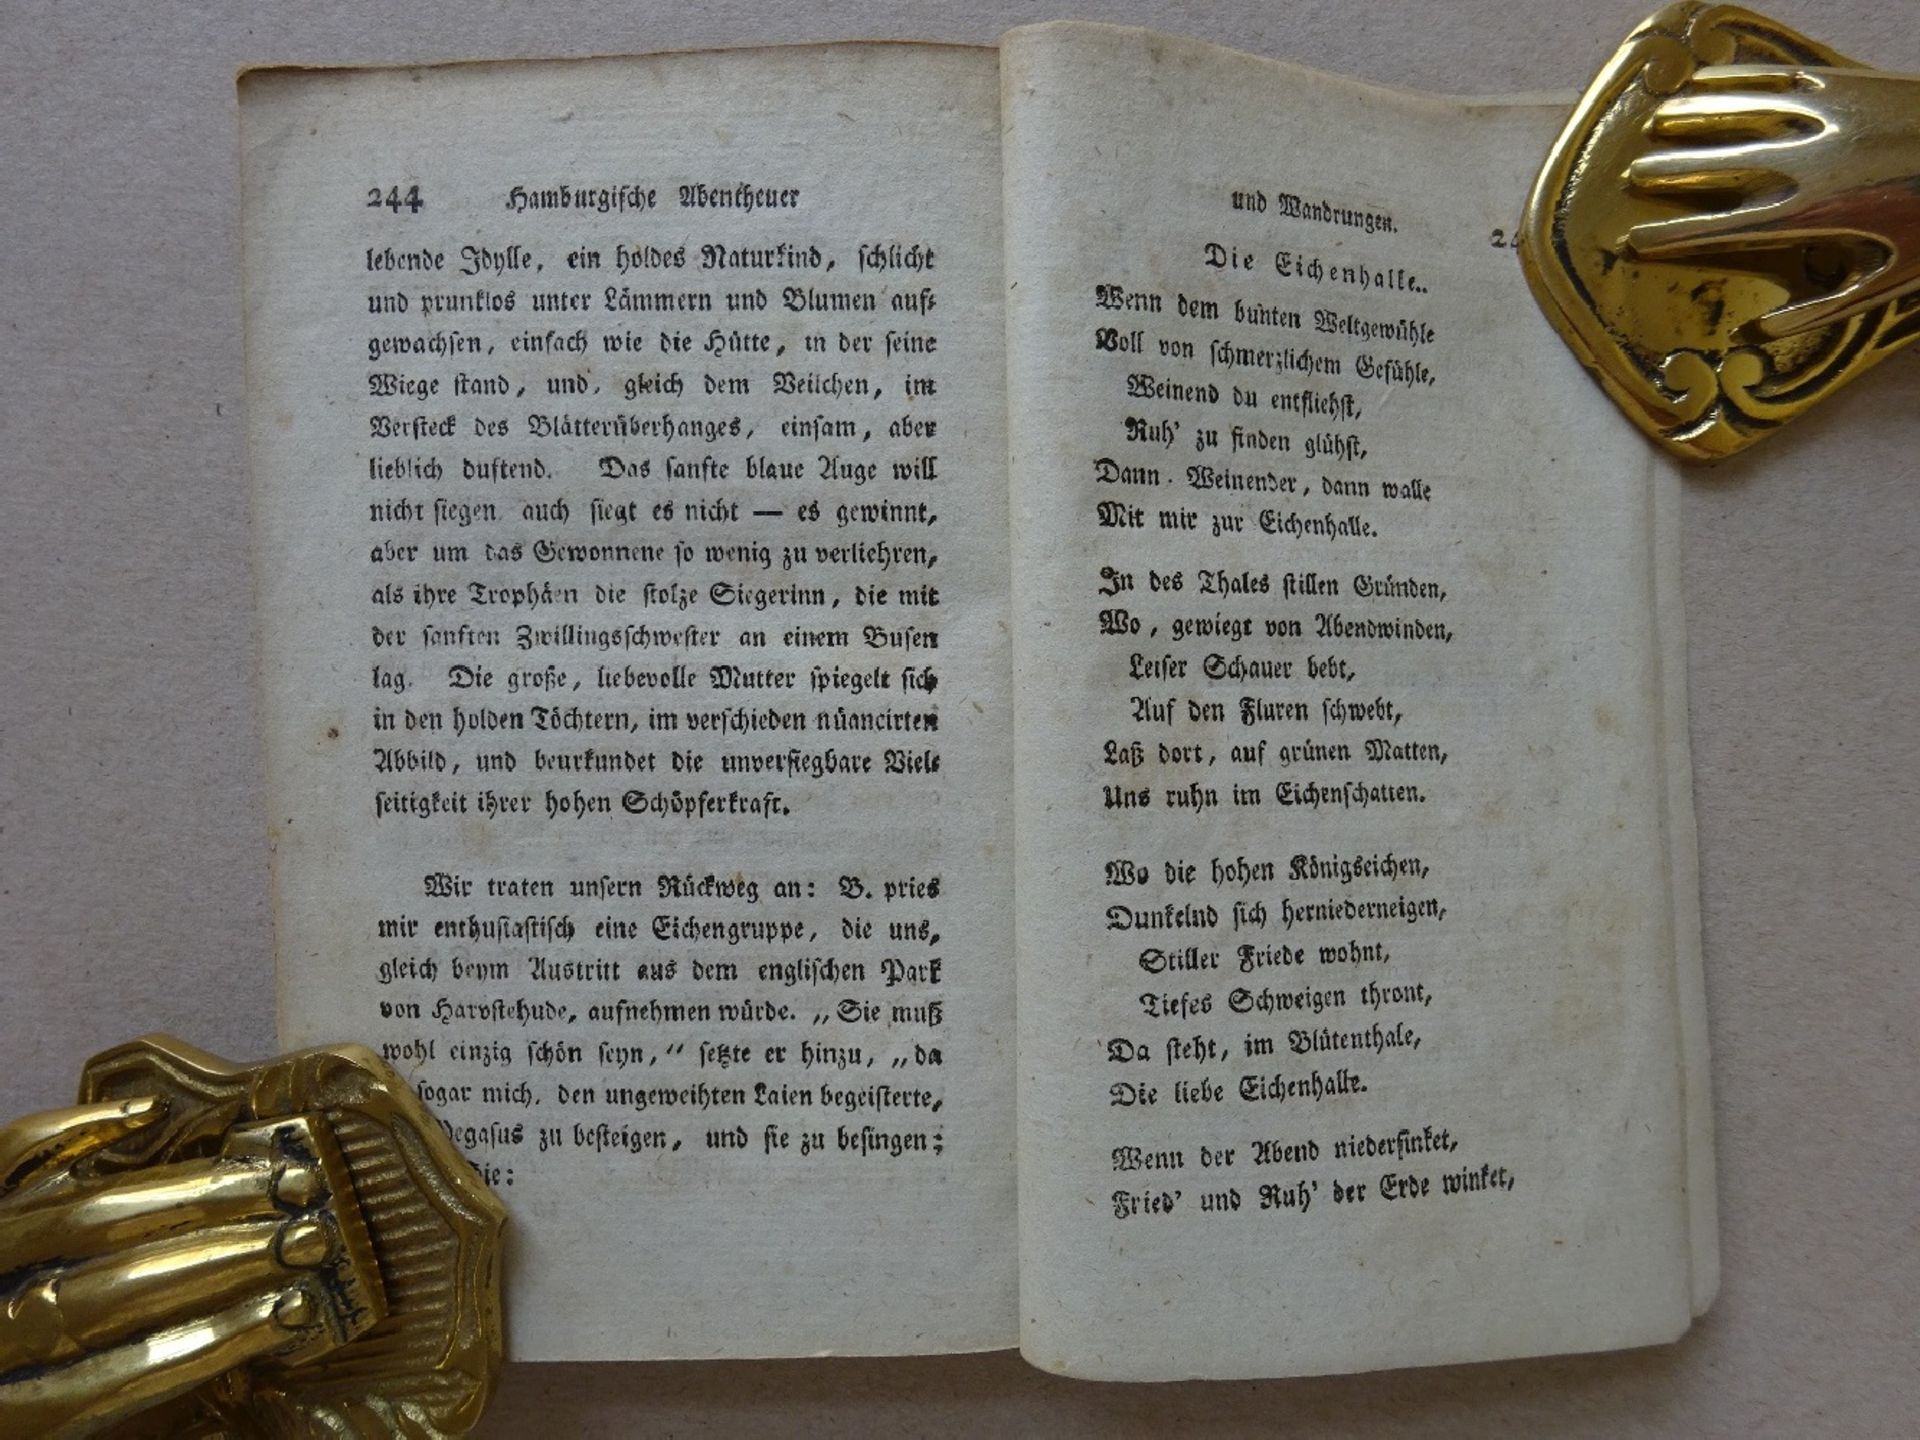 244 Hamburgische Abentheuer
lebende Idylle, ein holdes Naturkind, schlicht
und prunklos unter Lämmern und Blumen auf-
gewachsen, einfach wie die Hütte, in der seine
Wiege stand, und, gleich dem Veilchen, im
Versteck des Blätterüberhanges, einsam, aber
lieblich duftend. Das sanfte blaue Auge will
nicht siegen auch siegt es nicht — es gewinnt,
aber um das Gewonnene so wenig zu verliehren,
als ihre Trophäen die stolze Siegerinn, die mit
der sanften Zwillingsschwester an einem Busen
lag. Die große, liebevolle Mutter spiegelt sich
in den holden Töchtern, im verschieden nüancirten
Abbild, und beurkundet die unversiegbare Viel-
seitigkeit ihrer hohen Schöpferkraft.
Wir traten unsern Rückweg an: B. pries
mir enthusiastisch eine Eichengruppe, die uns,
gleich beym Austritt aus dem englischen Park
von Harvstehude, aufnehmen würde. „Sie muß
wohl einzig schön seyn,“ setzte er hinzu, „da
sogar mich, den ungeweihten Laien begeisterte,
Pegasus zu besteigen, und sie zu besingen;
die:
und Wandrungen.
Die Eichenhalle.
Wenn dem bunten Weltgewühle
Voll von schmerzlichem Gefühle,
Weinend du entfliehst,
Ruh' zu finden glühst,
Dann. Weinender, dann walle
Mit mir zur Eichenhalle.
In des Thales stillen Gründen,
Wo, gewiegt von Abendwinden,
Leiser Schauer bebt,
Auf den Fluren schwebt,
Laß dort, auf grünen Matten,
Uns ruhn im Eichenschatten.
Wo die hohen Königseichen,
Dunkelnd sich herniederneigen,
Stiller Friede wohnt,
Tiefes Schweigen thront,
Da steht, im Blütenthale,
Die liebe Eichenhalle.
Wenn der Abend niedersinket,
Fried' und Ruh' der Erde winket,